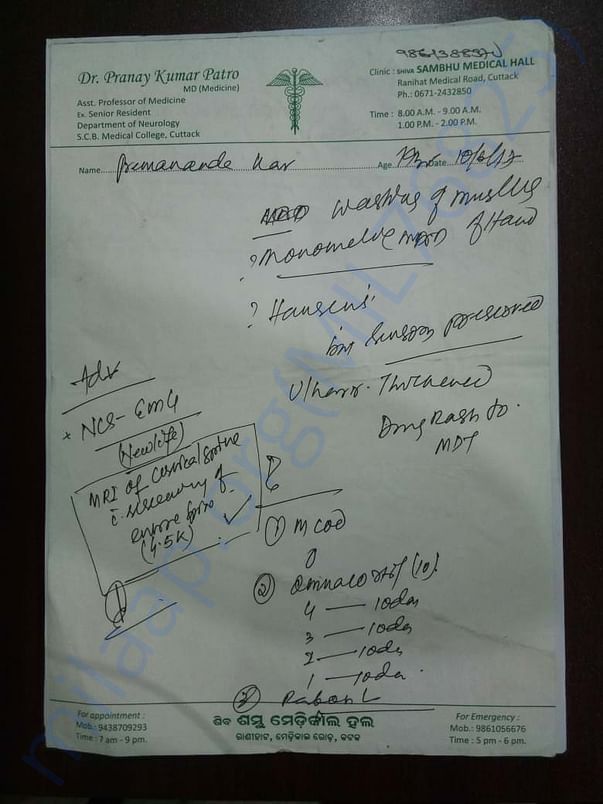 986138837
Dr. Pranay Kumar Patro
MD (Medicine)
Asst. Professor of Medicine
Ex. Senior Resident
Department of Neurology
S.C.B. Medical College, Cuttack
Clinic : SHIVA SAMBHU MEDICAL HALL
Ranihat Medical Road, Cuttack
Ph.: 0671-2432850
Time : 8.00 A.M. - 9.00 A.M.
1.00 P.M. - 2.00 P.M.
Name Premananda Kar Age Date
wasting of muscles
? Monomelic MND of Hand
? Hansen's
but sensory preserved
Ulnar. Thickened
Drug Rash to
MDT
Adv
NCS - EMG
(Newlife)
MRI of Cervical Spine
c screening of
entire spine
(4.5K)
① M COD
② Omnacortil (10)
4 — 10 days
3 — 10 days
2 — 10 days
1 — 10 days
③ L
For appointment :
Mob.: 9438709293
Time : 7 am - 9 pm.
ଶିବ ଶମ୍ଭୁ ମେଡ଼ିକାଲ ହଲ
ରାଣୀହାଟ, ମେଡ଼ିକାଲ ରୋଡ଼, କଟକ
For Emergency :
Mob.: 9861056676
Time : 5 pm - 6 pm.
milaap.org(MIL766253)